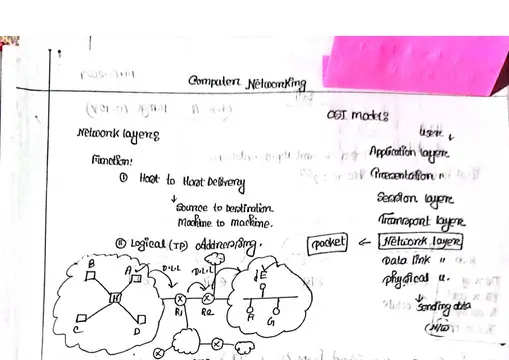 Computer Networking
Network layer:
Function:
① Host to Host Delivery
↓
Source to Destination
Machine to machine.
② Logical (IP) Addressing.
B
A
H
C
D
D.L.L
D.L.L
R1
R2
E
F
G
OSI model:
User ↓
Application layer
Presentation "
Session layer
Transport layer
packet ← Network layer
Data link "
physical "
↓
Sending data